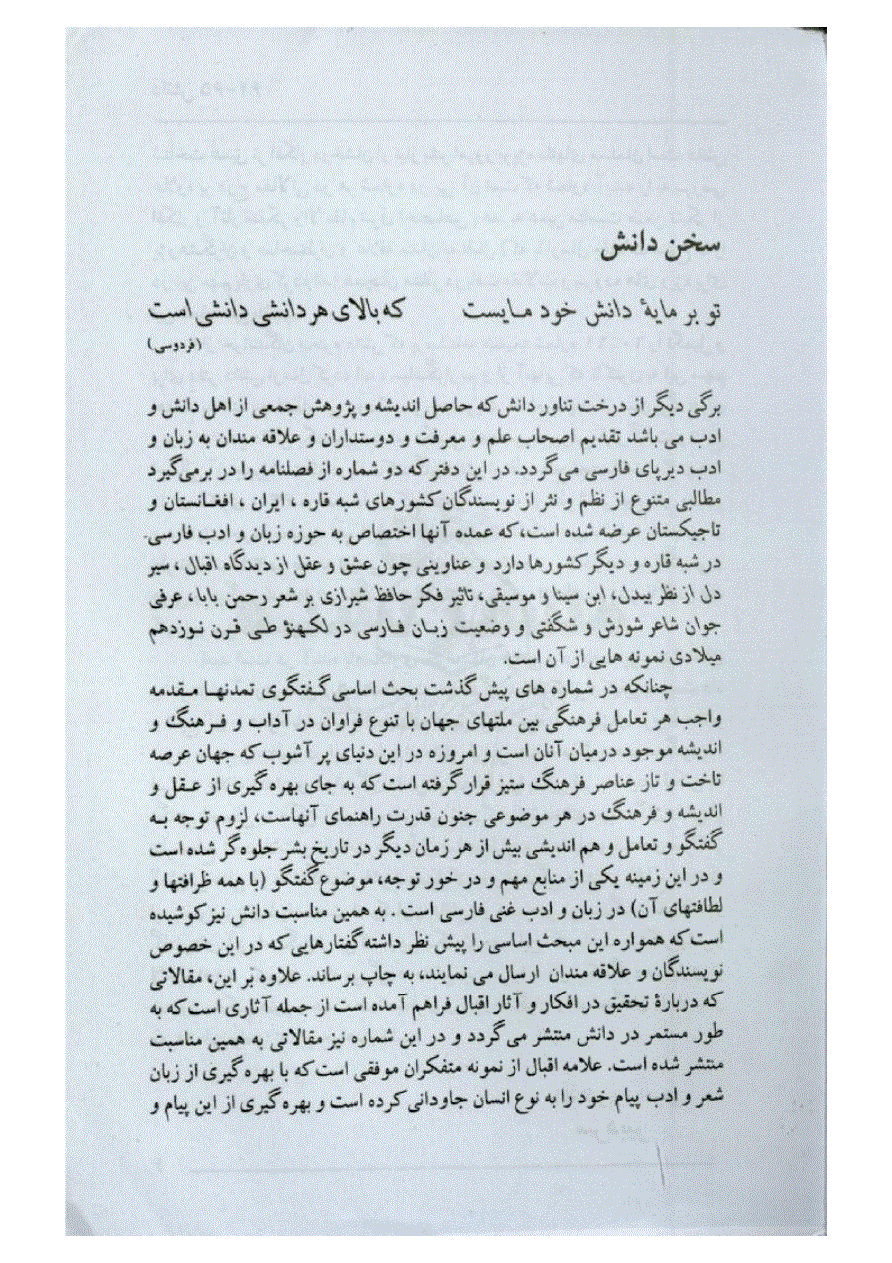 سخن دانش
تو بر مایهٔ دانش خود مـایست که بالای هر دانشی دانشی است
(فردوسی)
برگی دیگر از درخت تناور دانش که حاصل اندیشه و پژوهش جمعی از اهل دانش و
ادب می باشد تقدیم اصحاب علم و معرفت و دوستداران و علاقه مندان به زبان و
ادب دیرپای فارسی می گردد. در این دفتر که دو شماره از فصلنامه را در برمی‌گیرد
مطالبی متنوع از نظم و نثر از نویسندگان کشورهای شبه قاره ، ایران ، افغـانستان و
تاجیکستان عرضه شده است، که عمده آنها اختصاص به حوزه زبان و ادب فارسی.
در شبه قاره و دیگر کشورها دارد و عناوینی چون عشق و عقل از دیدگاه اقبال ، سیر
دل از نظر بیدل، ابن سینا و موسیقی، تاثیر فکر حافظ شیرازی بر شعر رحمن بابا، عرفی
جوان شاعر شورش و شگفتی و وضعیت زبـان فـارسی در لکـهنؤ طـی قـرن نـوزدهم
میلادی نمونه هایی از آن است.
چنانکه در شماره های پیش گذشت بحث اساسی گـفتگوی تمدنهـا مـقدمه
واجب هر تعامل فرهنگی بین ملتهای جهان با تنوع فراوان در آداب و فـرهنگ و
اندیشه موجود درمیان آنان است و امروزه در این دنیای پر آشوب که جهان عرصه
تاخت و تاز عناصر فرهنگ ستیز قرار گرفته است که به جای بهره گیری از عـقل و
اندیشه و فرهنگ در هر موضوعی جنون قدرت راهنمای آنهاست، لزوم توجه بـه
گفتگو و تعامل و هم اندیشی بیش از هر زمان دیگر در تاریخ بشر جلوه گر شده است
و در این زمینه یکی از منابع مهم و در خور توجه، موضوع گفتگو (با همه ظرافتها و
لطافتهای آن) در زبان و ادب غنی فارسی است . به همین مناسبت دانش نیز کوشیده
است که همواره این مبحث اساسی را پیش نظر داشته گفتارهایی که در این خصوص
نویسندگان و علاقه مندان ارسال می نمایند، به چاپ برساند. علاوه بر این، مقالاتی
که دربارهٔ تحقیق در افکار و آثار اقبال فراهم آمده است از جمله آثاری است که به
طور مستمر در دانش منتشر می گردد و در این شماره نیز مقالاتی به همین مناسبت
منتشر شده است. علامه اقبال از نمونه متفکران موفقی است که با بهره گیری از زبان
شعر و ادب پیام خود را به نوع انسان جاودانی کرده است و بهره گیری از این پیام و